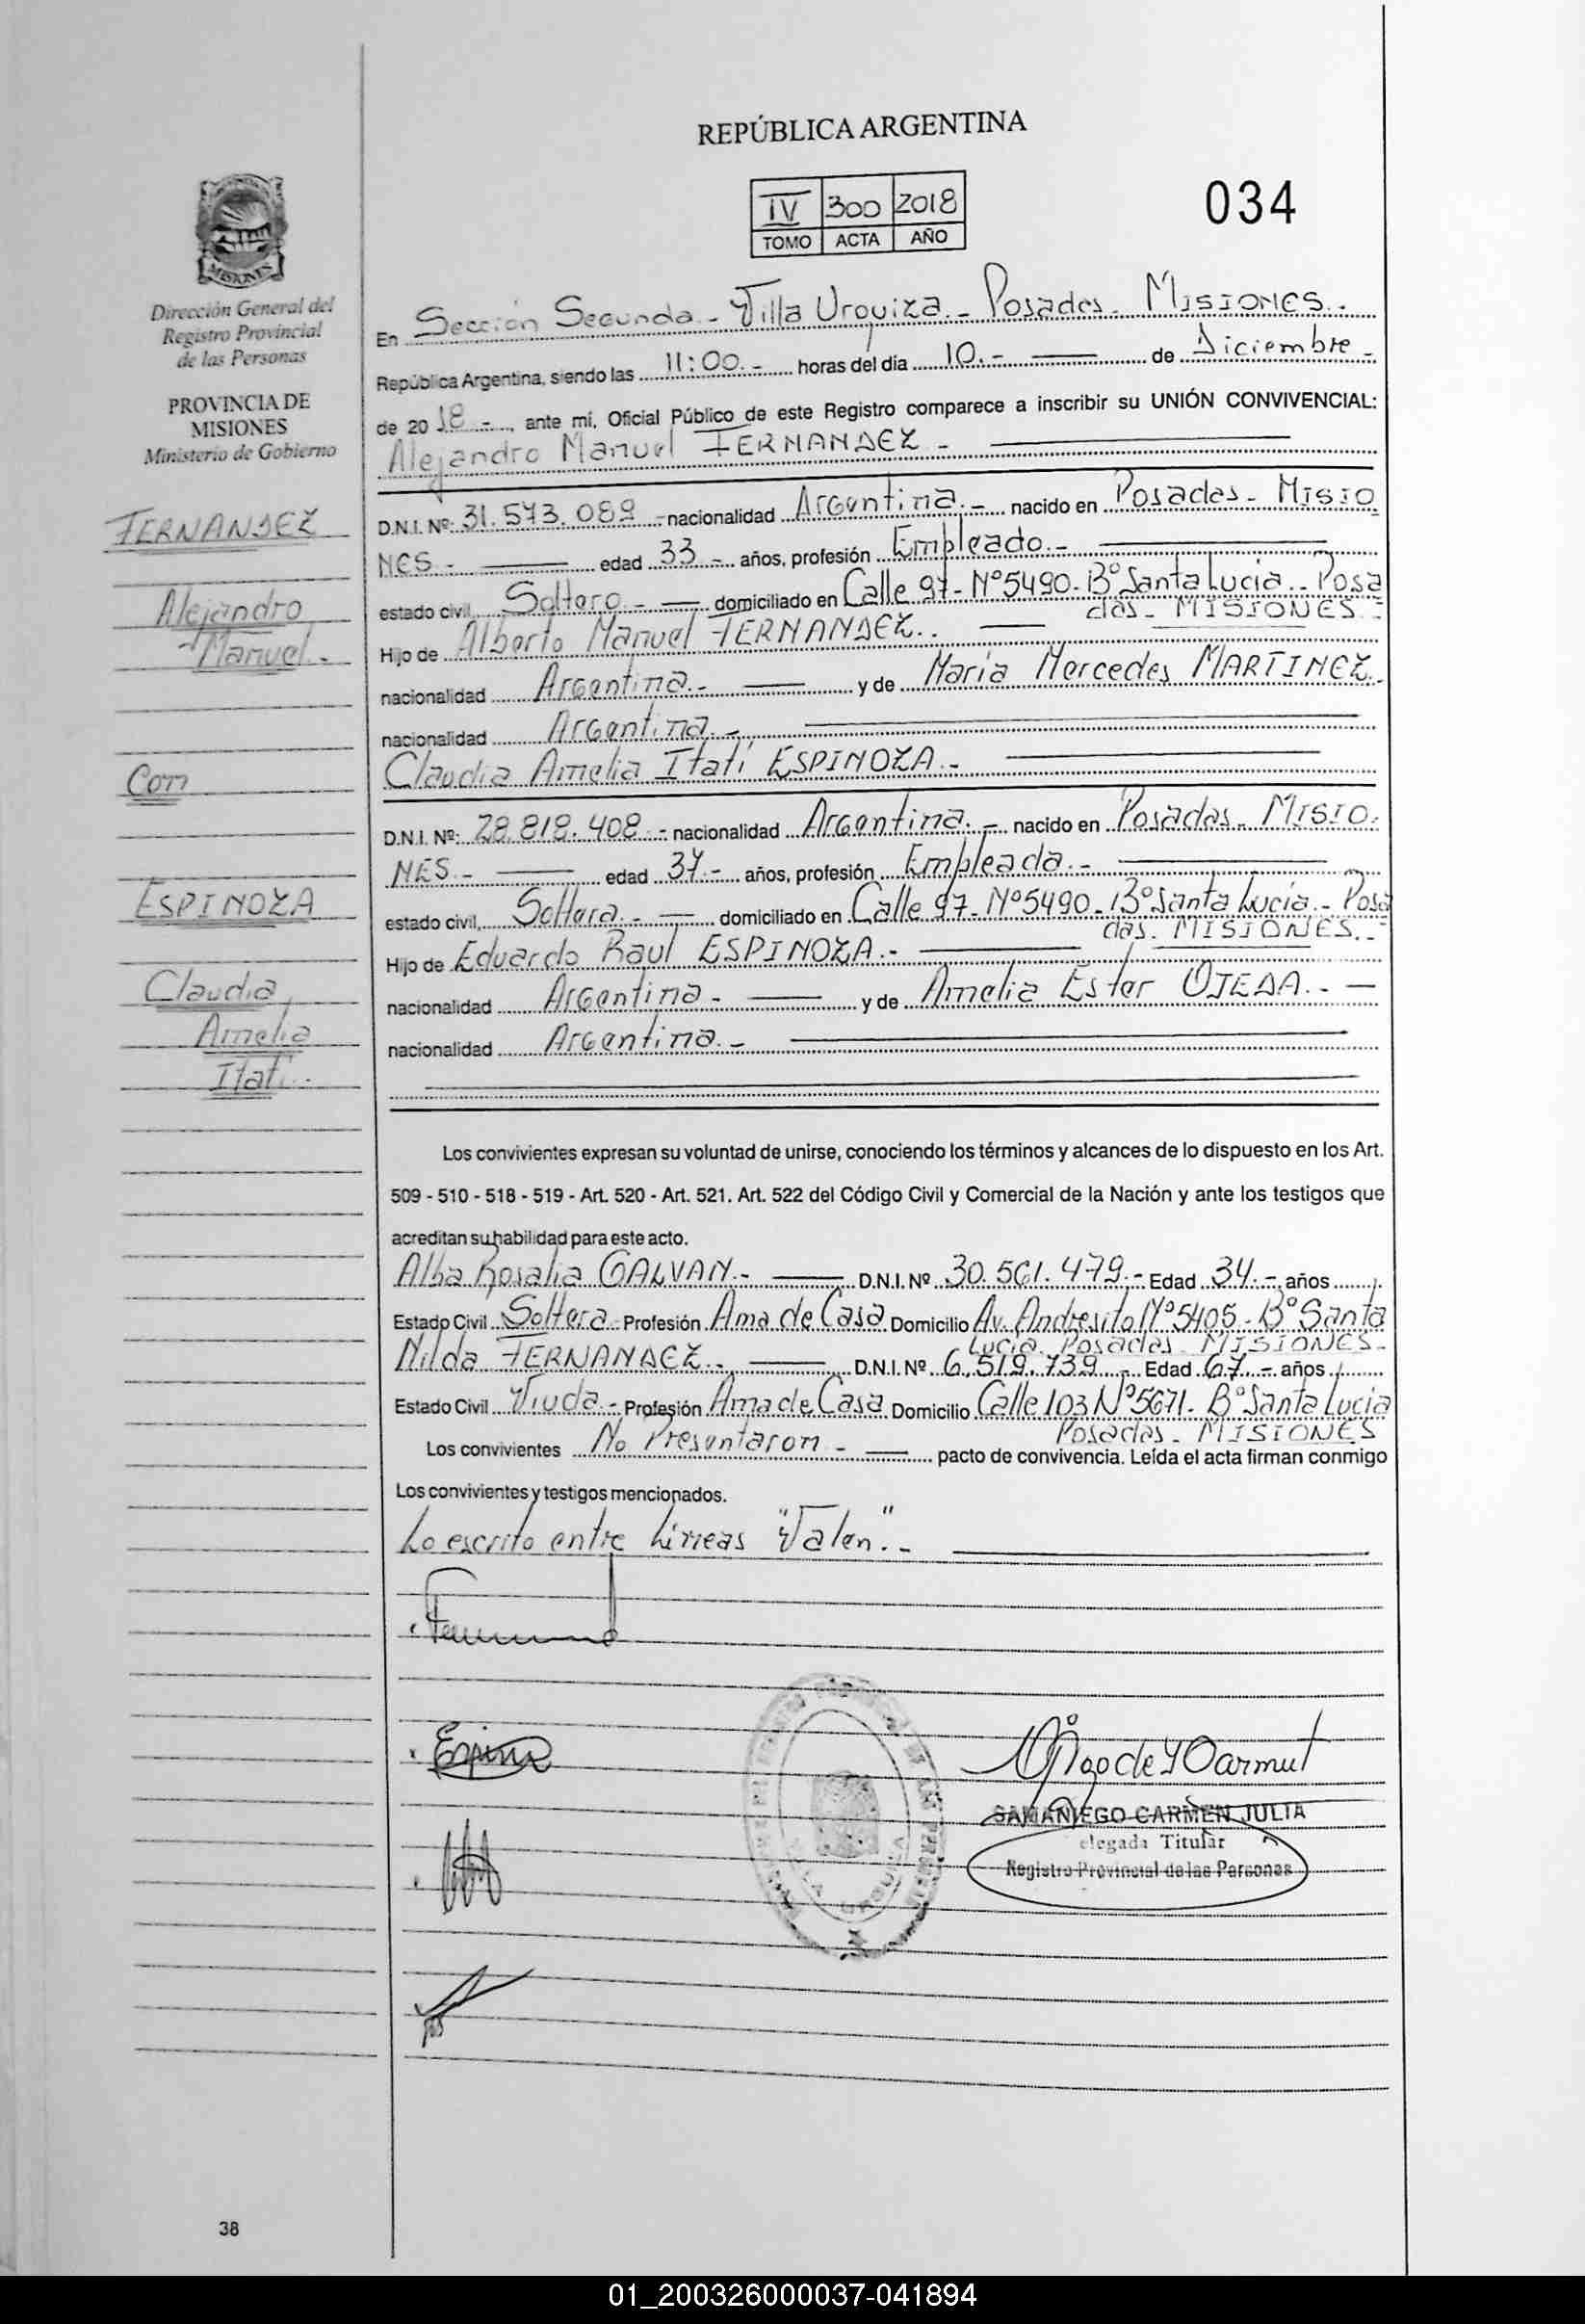 REPÚBLICA ARGENTINA
IV 300 2018
TOMO ACTA AÑO
034
MISIONES
Dirección General del
Registro Provincial
de las Personas
PROVINCIA DE
MISIONES
Ministerio de Gobierno
FERNANDEZ
Alejandro
Manuel.-
Con
ESPINOZA
Claudia
Amelia
Itatí.-
En Sección Segunda.- Villa Urquiza.- Posadas- MISIONES.-
República Argentina, siendo las 11:00.- horas del día 10.- de Diciembre-
de 2018-, ante mí, Oficial Público de este Registro comparece a inscribir su UNIÓN CONVIVENCIAL:
Alejandro Manuel FERNANDEZ-
D.N.I. Nº: 31.573.089 - nacionalidad Argentina.- nacido en Posadas- MISIO
NES- edad 33.- años, profesión Empleado.-
estado civil, Soltero- domiciliado en Calle 97- Nº5490- Bº Santa Lucia.- Posa
das- MISIONES-
Hijo de Alberto Manuel FERNANDEZ..
nacionalidad Argentina.- y de María Mercedes MARTINEZ.
nacionalidad Argentina.-
Claudia Amelia Itatí ESPINOZA.-
D.N.I. Nº: 28.818.408.- nacionalidad Argentina.- nacido en Posadas- MISIO-
NES- edad 37.- años, profesión Empleada.-
estado civil, Soltera.- domiciliado en Calle 97- Nº5490- Bº Santa Lucía.- Posa
das. MISIONES.-
Hijo de Eduardo Raul ESPINOZA.-
nacionalidad Argentina- y de Amelia Ester OJEDA.-
nacionalidad Argentina.-
Los convivientes expresan su voluntad de unirse, conociendo los términos y alcances de lo dispuesto en los Art.
509 - 510 - 518 - 519 - Art. 520 - Art. 521. Art. 522 del Código Civil y Comercial de la Nación y ante los testigos que
acreditan su habilidad para este acto.
Alba Rosalia GALVAN.- D.N.I. Nº 30.561.479.- Edad 34.- años
Estado Civil Soltera- Profesión Ama de Casa Domicilio Av. Andresito Nº5405- Bº Santa
Lucía. Posadas. MISIONES-
Nilda FERNANDEZ.. D.N.I. Nº 6.519.739.- Edad 67.- años
Estado Civil Viuda.- Profesión Ama de Casa Domicilio Calle 103 Nº5671- Bº Santa Lucía
Posadas- MISIONES
Los convivientes No Presentaron- pacto de convivencia. Leída el acta firman conmigo
Los convivientes y testigos mencionados.
Lo escrito entre líneas "Valen".-
SAMANIEGO CARMEN JULIA
elegada Titular
Registro Provincial de las Personas
VILLA URQUIZA
38
01_200326000037-041894